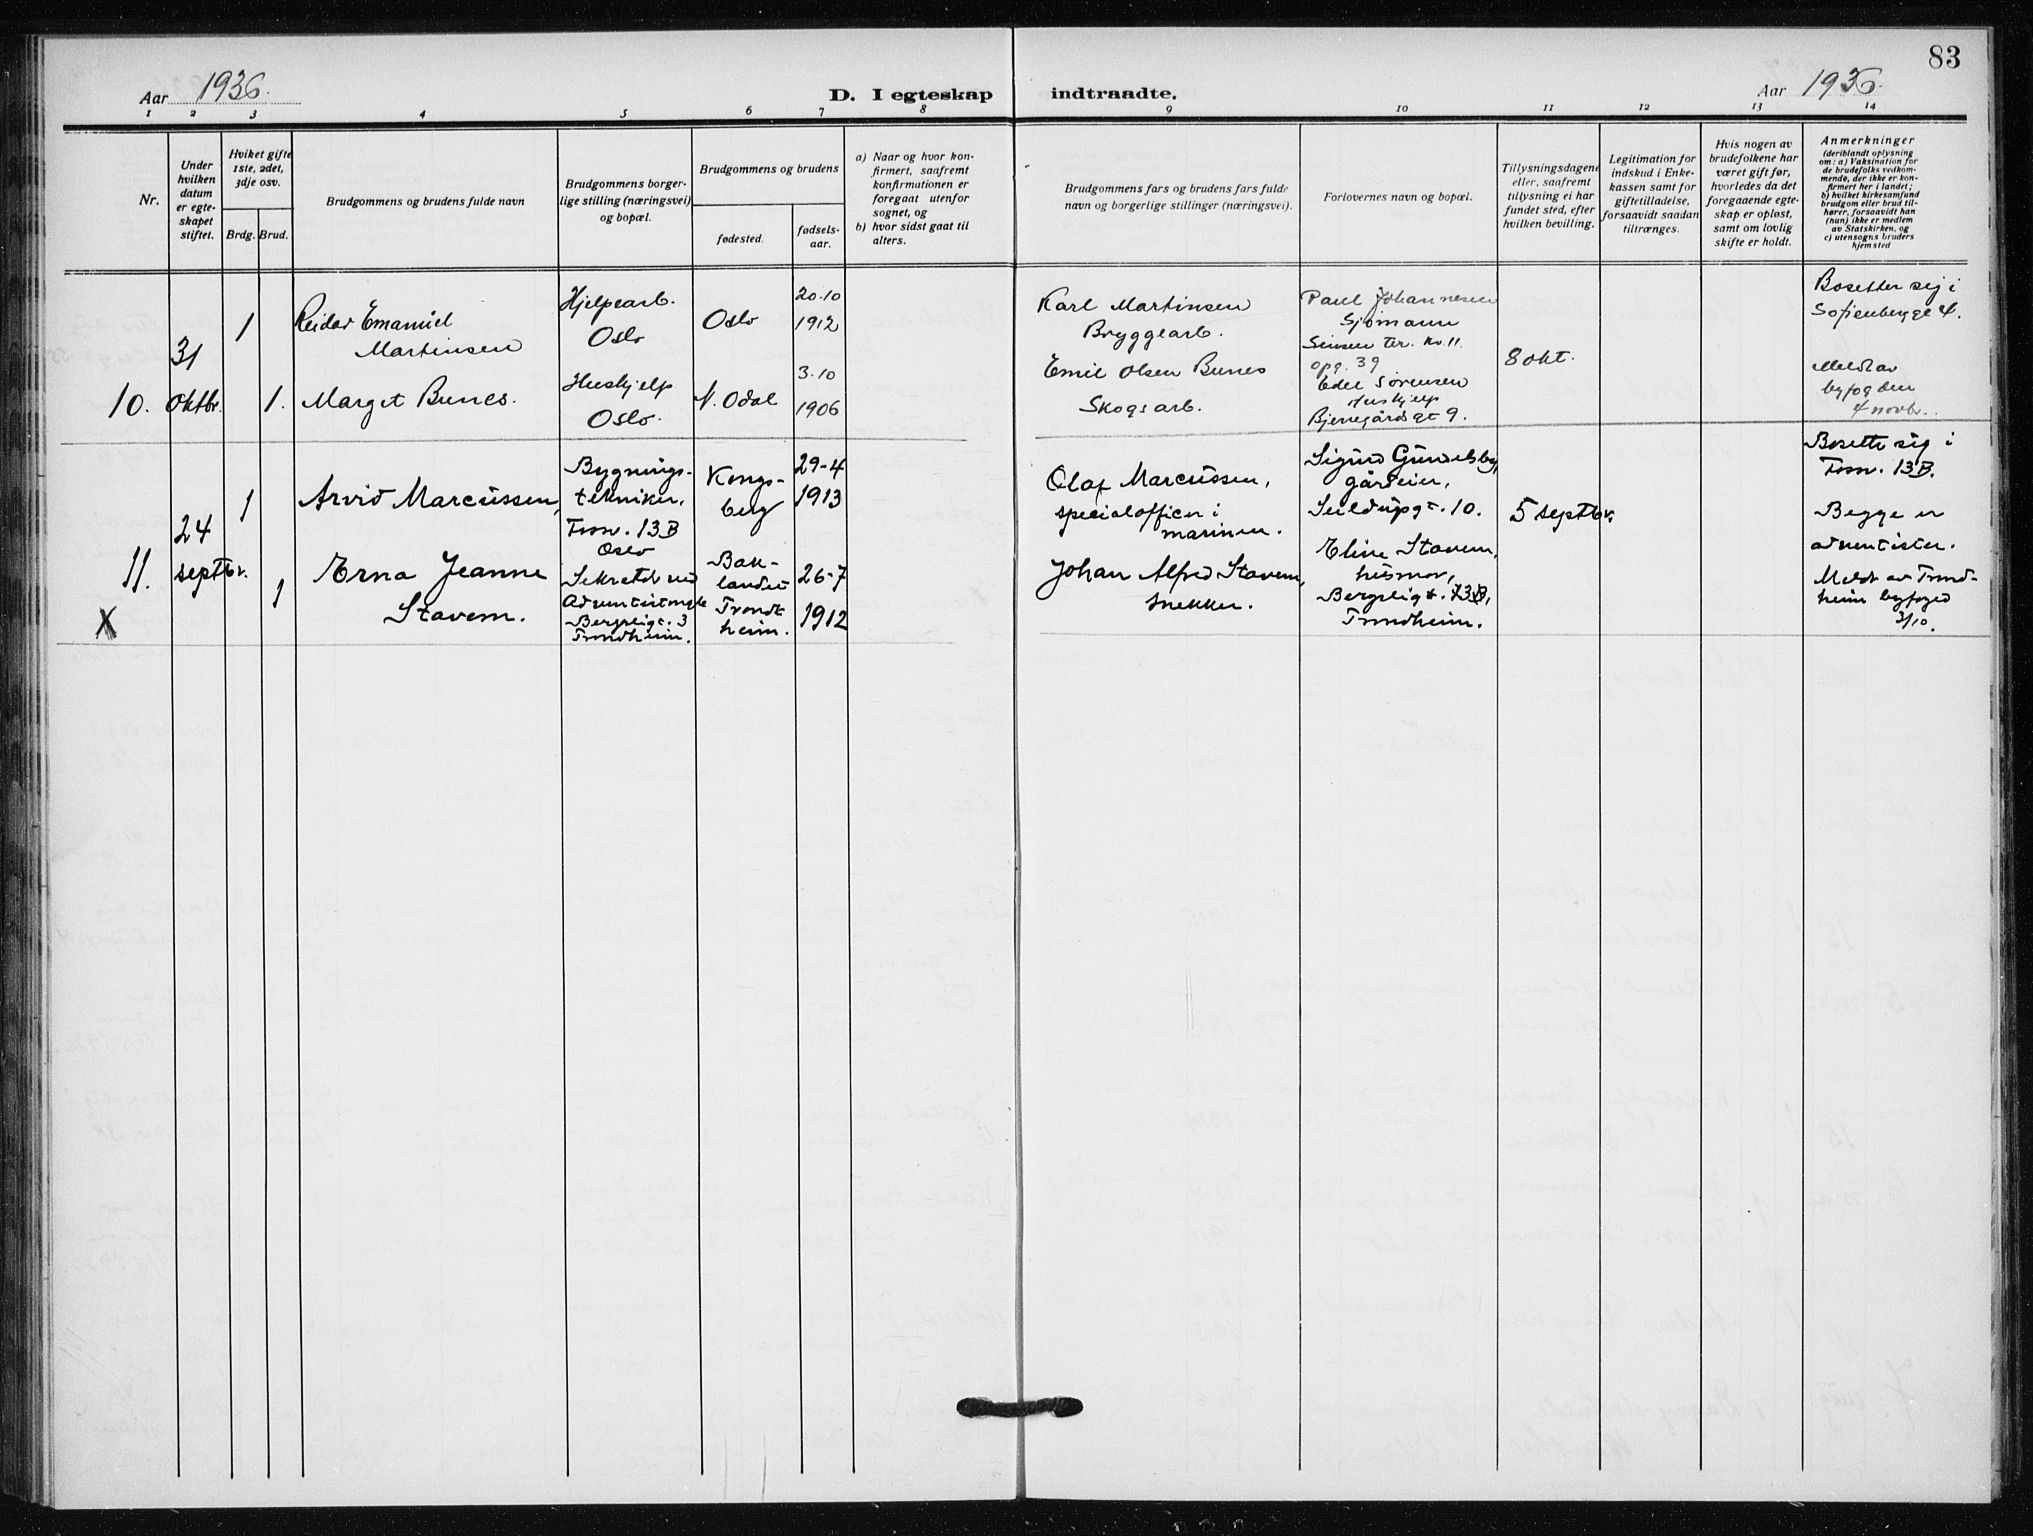 83
Aar 1936.
D. I egteskap indtraadte.
Aar 1936.
1 2 3 4 5 6 7 8 9 10 11 12 13 14
Nr.
Under
hvilken
datum
er egte-
skapet
stiftet.
Hviket gifte
1ste, 2det,
3dje osv.
Brdg. Brud.
Brudgommens og brudens fulde navn
Brudgommens borger-
lige stilling (næringsvei)
og bopæl.
Brudgommens og brudens
fødested.
fødsels-
aar.
a) Naar og hvor kon-
firmert, saafremt
konfirmutionen er
foregaat utenfor
sognet, og
b) hvor sidst gaat til
alters.
Brudgommens fars og brudens fars fulde
navn og borgerlige stillinger (næringsvei).
Forlovernes navn og bopæl.
Tillysningsdagene
eller, saafremt
tillysning ei har
fundet sted, efter
hvilken bevilling.
Legitimation for
indskud i Enke-
kassen samt for
giftetilladelse,
forsaavidt saadan
tiltrænges.
Hvis nogen av
brudefolkene har
været gift før,
hvorledes da det
foregaaende egte-
skap er opløst,
samt om lovlig
skifte er holdt.
Anmerkninger
(deriblandt oplysning
om: a) Vaksination for
de brudefolks vedkom-
mende, der ikke er kon-
firmert her i landet;
b) hvilket kirkesamfund
brudgom eller brud til-
hører, forsaavidt han
(hun) ikke er medlem
av Statskirken, og
c) utensogns bruders
hjemsted
10.
31
oktbr.
1
Reidar Emanuel
Martinsen
Hjelpearb.
Oslo
Oslo
20.10
1912
1.
Margit Bunes.
Huskjelp
Oslo.
N. Odal
3.10
1906
Karl Martinsen
Bryggearb.
Emil Olsen Bunes
Skogsarb.
Paul Johannesen
Sjømann
Sinsen ter. kv. 11.
opg. 39
Edel Sørensen
Huskjelp
Bjerregårdsgt 9.
8 okt.
Bosetter sig i
Sofienbergg 4.
Meldt av
byfogden
4 novbr.
11.
X
24
septbr.
1
Arvid Marcussen,
Bygnings-
tekniker,
Frsv. 13B
Oslo
Kongs-
berg
29-4
1913
1
Erna Jeanne
Stavem.
Sekretær ved
Bergsligt. 3
Trondheim.
Bak-
landet
Trondt
heim.
26-7
1912
Olaf Marcussen,
specialofficer i
marinen.
Johan Alfred Stavem,
snekker.
Sigurd Gundelsby,
gårdeier,
Seildugsgt. 10.
Eline Stavem,
husmor,
Bergsligt. 13B,
Trondheim.
5 septbr.
Bosette sig i
13B.
Begge er
adventister.
Meldt av Trond-
heim byfoged
3/10.